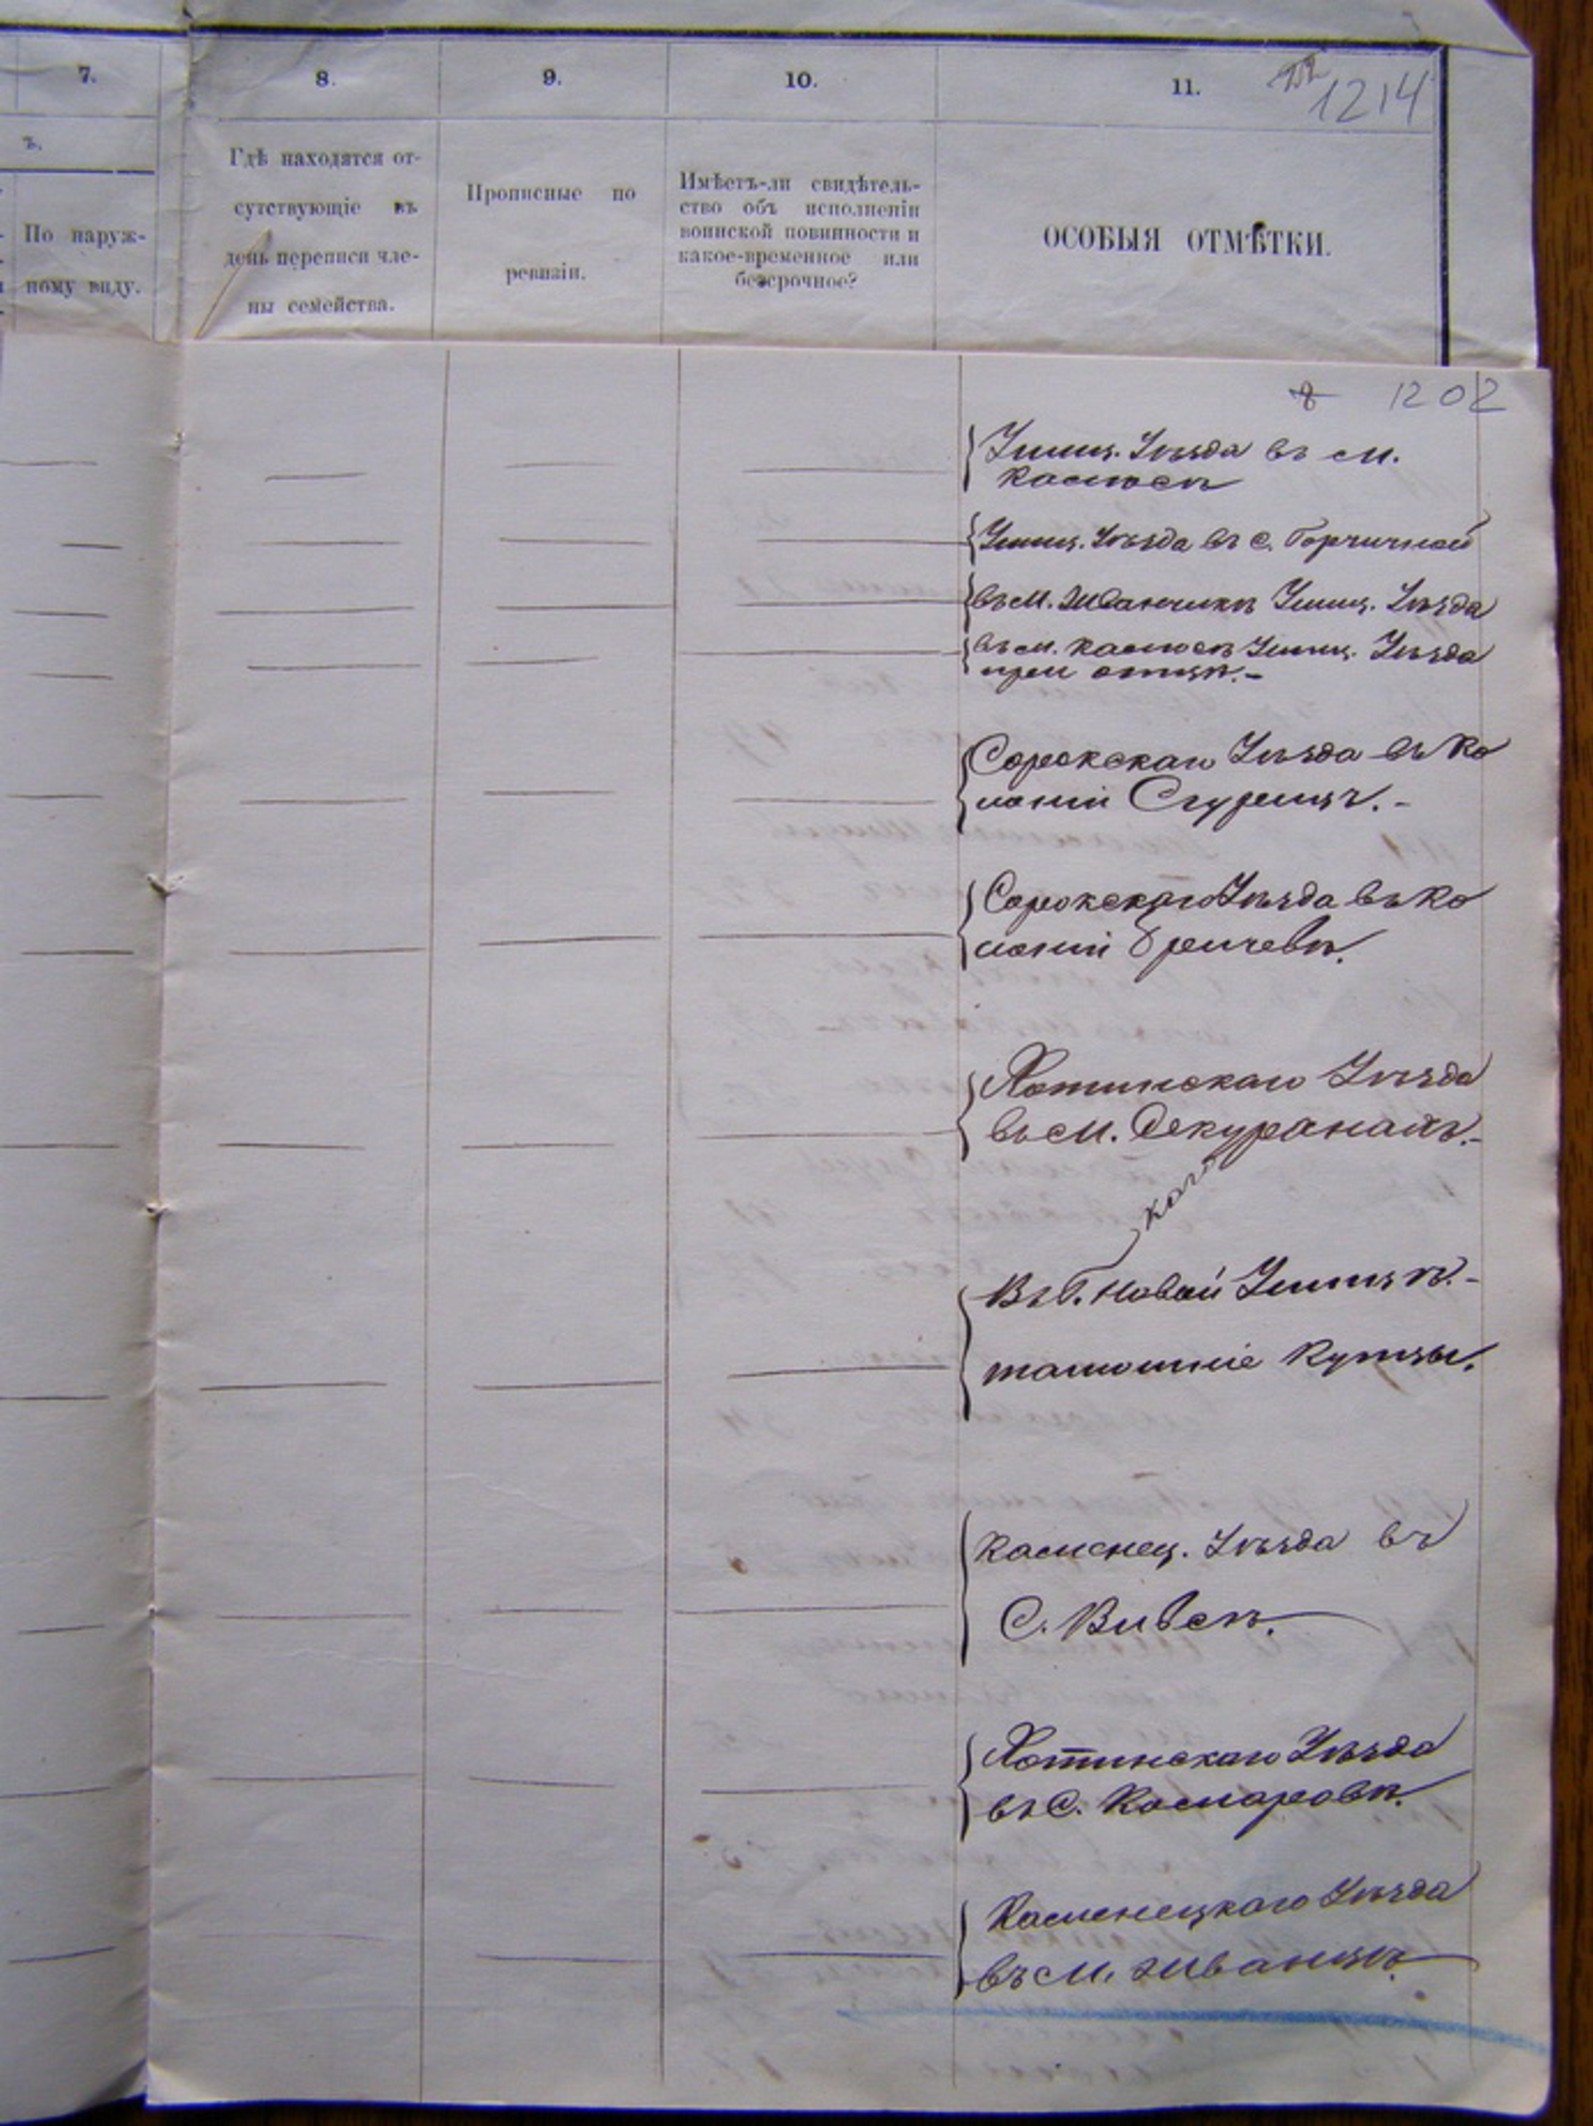 7.
8.
9.
10.
11.
1214
ъ.
По наруж-
ному виду.
Гдѣ находятся от-
сутствующіе въ
день переписи чле-
ны семейства.
Прописные по
ревизіи.
Имѣетъ-ли свидѣтель-
ство объ исполненіи
воинской повинности и
какое-временное или
безсрочное?
ОСОБЫЯ ОТМѢТКИ.
8 1202
Ушиц. Уѣзда въ м.
Калюсѣ
Ушиц. Уѣзда въ с. Горчичной
въ м. Жванчикѣ Ушиц. Уѣзда
въ м. Калюсѣ Ушиц. Уѣзда
при отцѣ.-
Сорокскаго Уѣзда въ Ко
лоніи Згурицѣ.-
Сорокскаго Уѣзда въ Ко
лоніи Бричевѣ.
Хотинскаго Уѣзда
въ м. Секурянахъ.-
Въ Г. Новой Ушицѣ.-
тамошніе Купцы.
Каменец. Уѣзда въ
С. Вивсѣ.
Хотинскаго Уѣзда
въ С. Комаровѣ.
Каменецкаго Уѣзда
въ м. Жванцѣ.